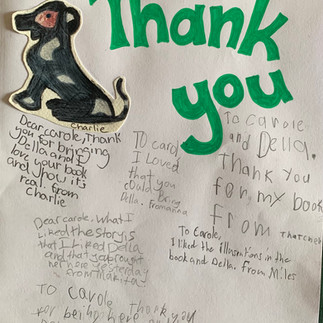 Thank
you
Charlie
Dear, carole, Thank
you for bringing
Della and I
love your book
and how it's
real. from
Charlie
TO carol
I Loved
that you
could bring
Della.
To Carole
and Della.
Thank you
for my book
From Thatcher
To Carole,
I liked the illustrations in the
book and Della. From Miles
Dear carole, what I
Liked the story is
that I Liked Della
and that you brought
her here yesterday
from
TO Carole Thank you
for being here